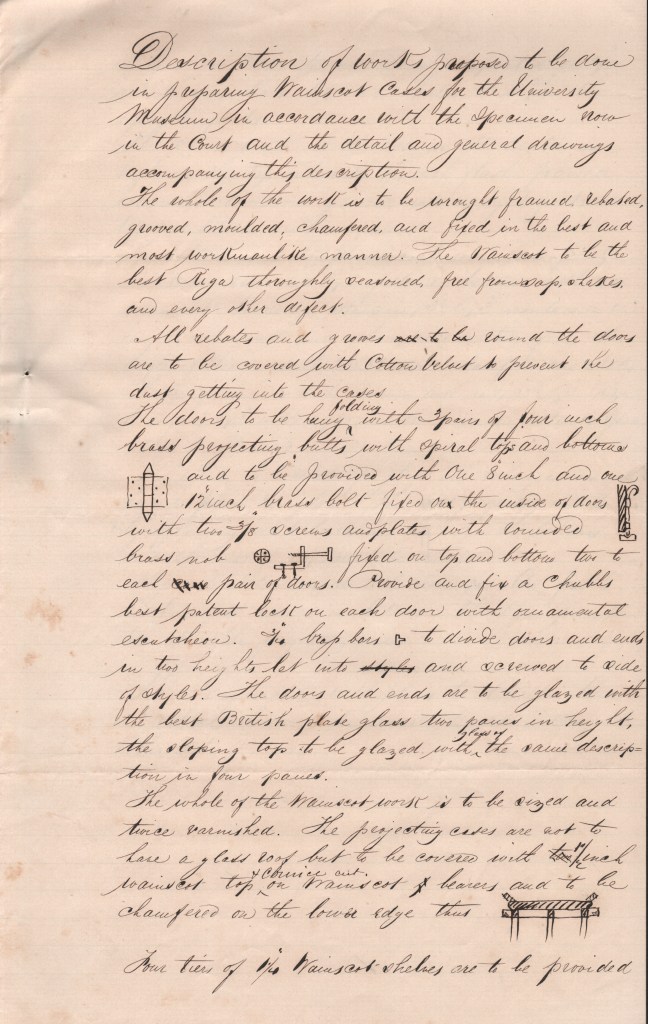 Description of works proposed to be done
in preparing Wainscot Cases for the University
Museum in accordance with the specimen now
in the Court and the detail and general drawings
accompanying this description.
The whole of the work is to be wrought framed, rebated,
grooved, moulded, chamfered, and fixed in the best and
most workmanlike manner. The Wainscot to be the
best Riga thoroughly seasoned, free from sap, shakes,
and every other defect.
All rebates and grooves round the doors
are to be covered with Cotton Velvet to prevent the
dust getting into the cases
The doors to be hung folding with 3 pairs of four inch
brass projecting butts with spiral tops and bottoms
and to be provided with One 8 inch and one
12 inch brass bolt fixed on the inside of doors
with two 3/8" screws and plates with rounded
brass nob fixed on top and bottom two to
each pair of doors. Provide and fix a Chubbs
best patent lock on each door with ornamental
escutcheon. bars to divide doors and ends
in two heights let into styles and screwed to side
of styles. The doors and ends are to be glazed with
the best British plate glass two panes in height,
the sloping top to be glazed with glass of the same descrip=
tion in four panes.
The whole of the Wainscot work is to be sized and
twice varnished. The projecting cases are not to
have a glass roof but to be covered with inch
wainscot top & cornice on Wainscot bearers and to be
chamfered on the lower edge thus
Four tiers of 1 1/4" Wainscot shelves are to be provided